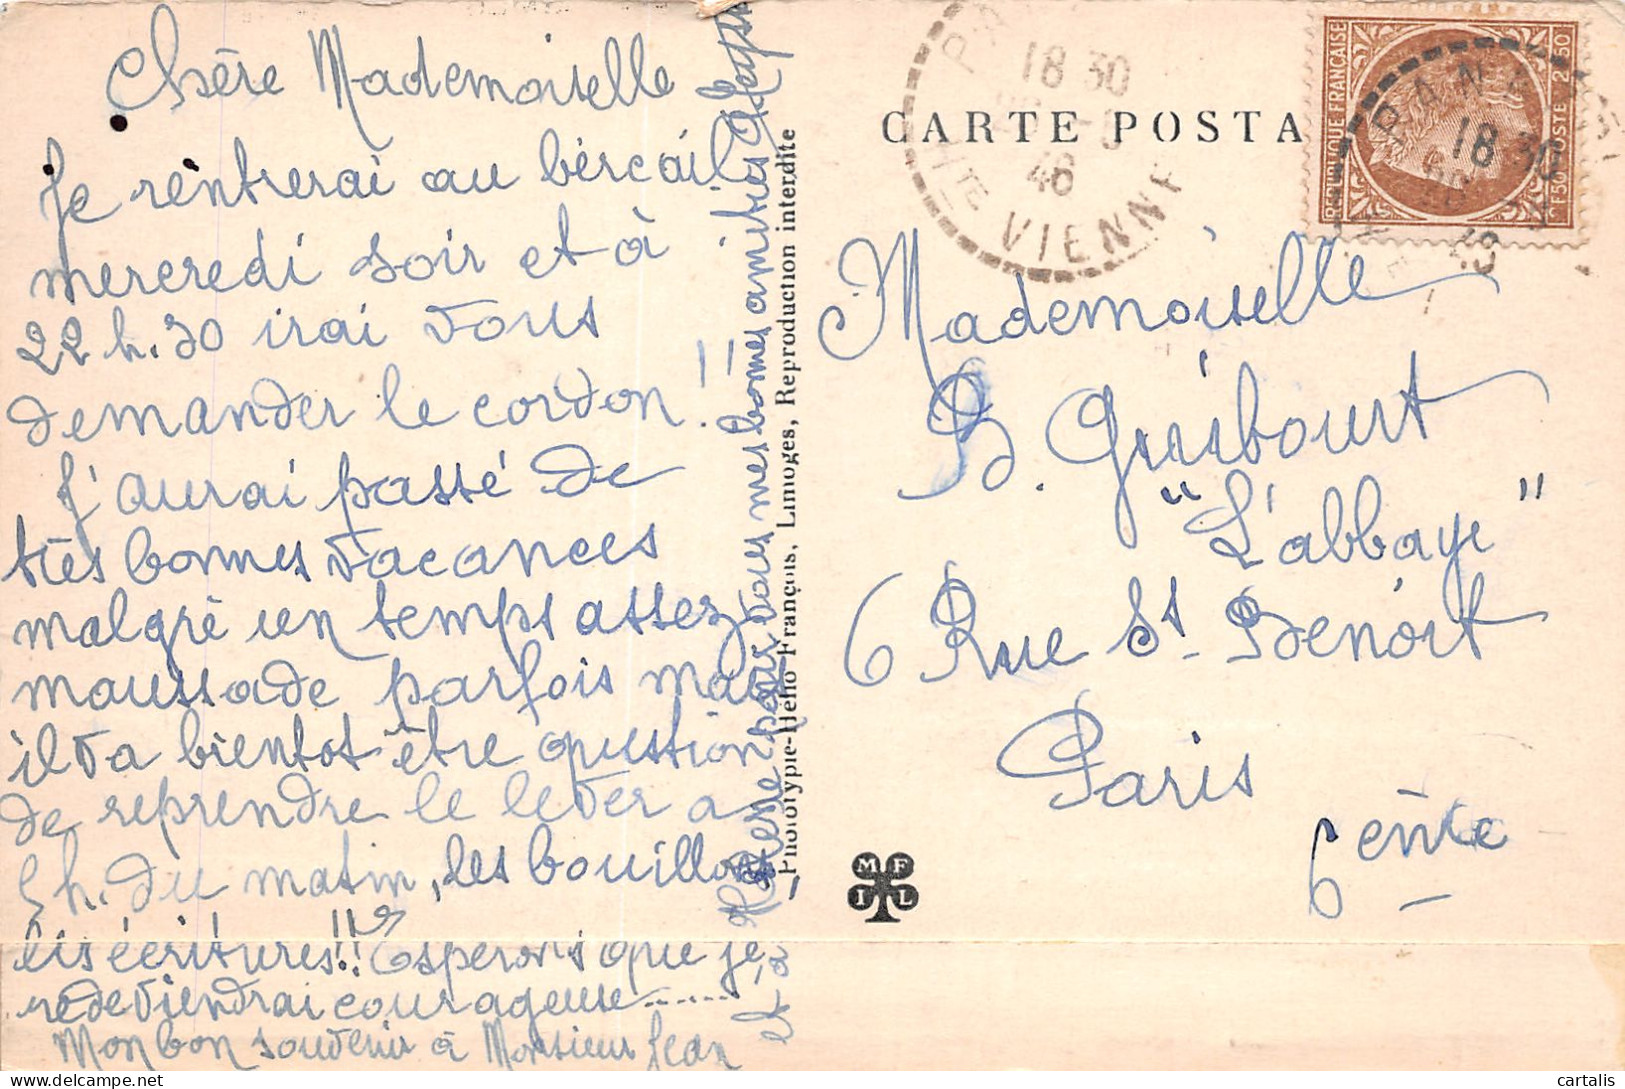 Chère Mademoiselle
Je rentrerai au bercail
mercredi soir et à
22 h. 30 irai vous
demander le cordon!!
J'aurai passé de
très bonnes vacances
malgré un temps assez
maussade parfois mais
il va bientôt être question
de reprendre le lever à
5 h. du matin, les bouillons
les écritures!! Espérons que je
redeviendrai courageuse......
Mon bon souvenir à Monsieur Jean
et à
pour vous mes bonnes amitiés
Phototypie-Hélio François, Limoges, Reproduction interdite
CARTE POSTA
18 30
46
VIENNE
REPUBLIQUE FRANÇAISE
POSTE 2F50
18 30
Mademoiselle
B. Guibourt
"L'abbaye"
6 Rue St Benoît
Paris
6ème
M F
I L
cartalis